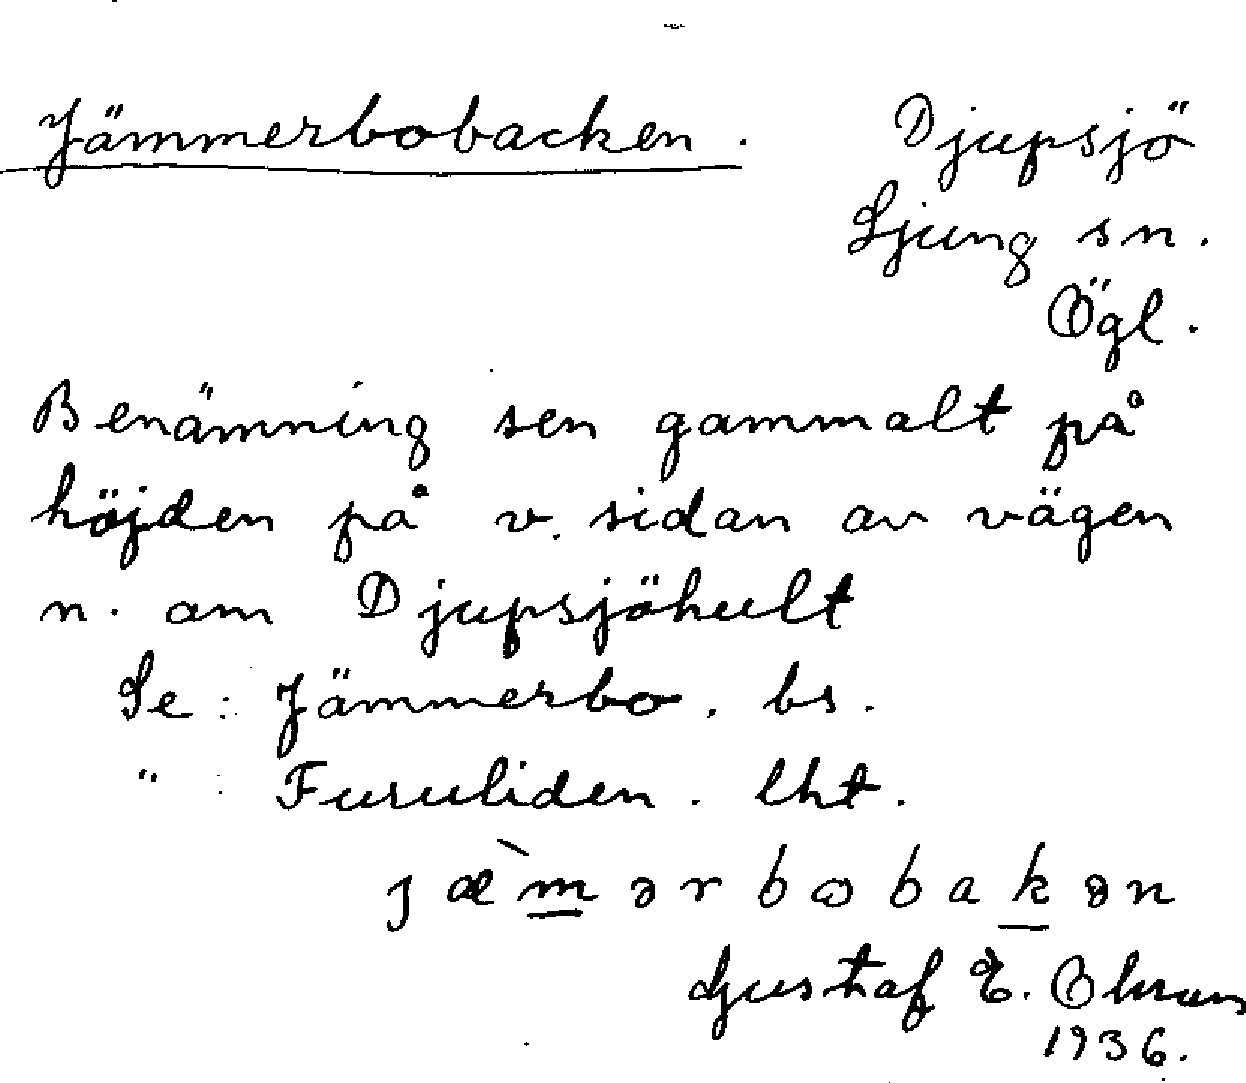 Jämmerbobacken.
Djupsjö
Ljung sn.
Ögl.
Benämning sen gammalt på
höjden på v. sidan av vägen
n. om Djupsjöhult
Se: Jämmerbo. bs.
" : Furuliden. lht.
jæ̀m̲ərbɷbak̲ən
Gustaf E.
1936.